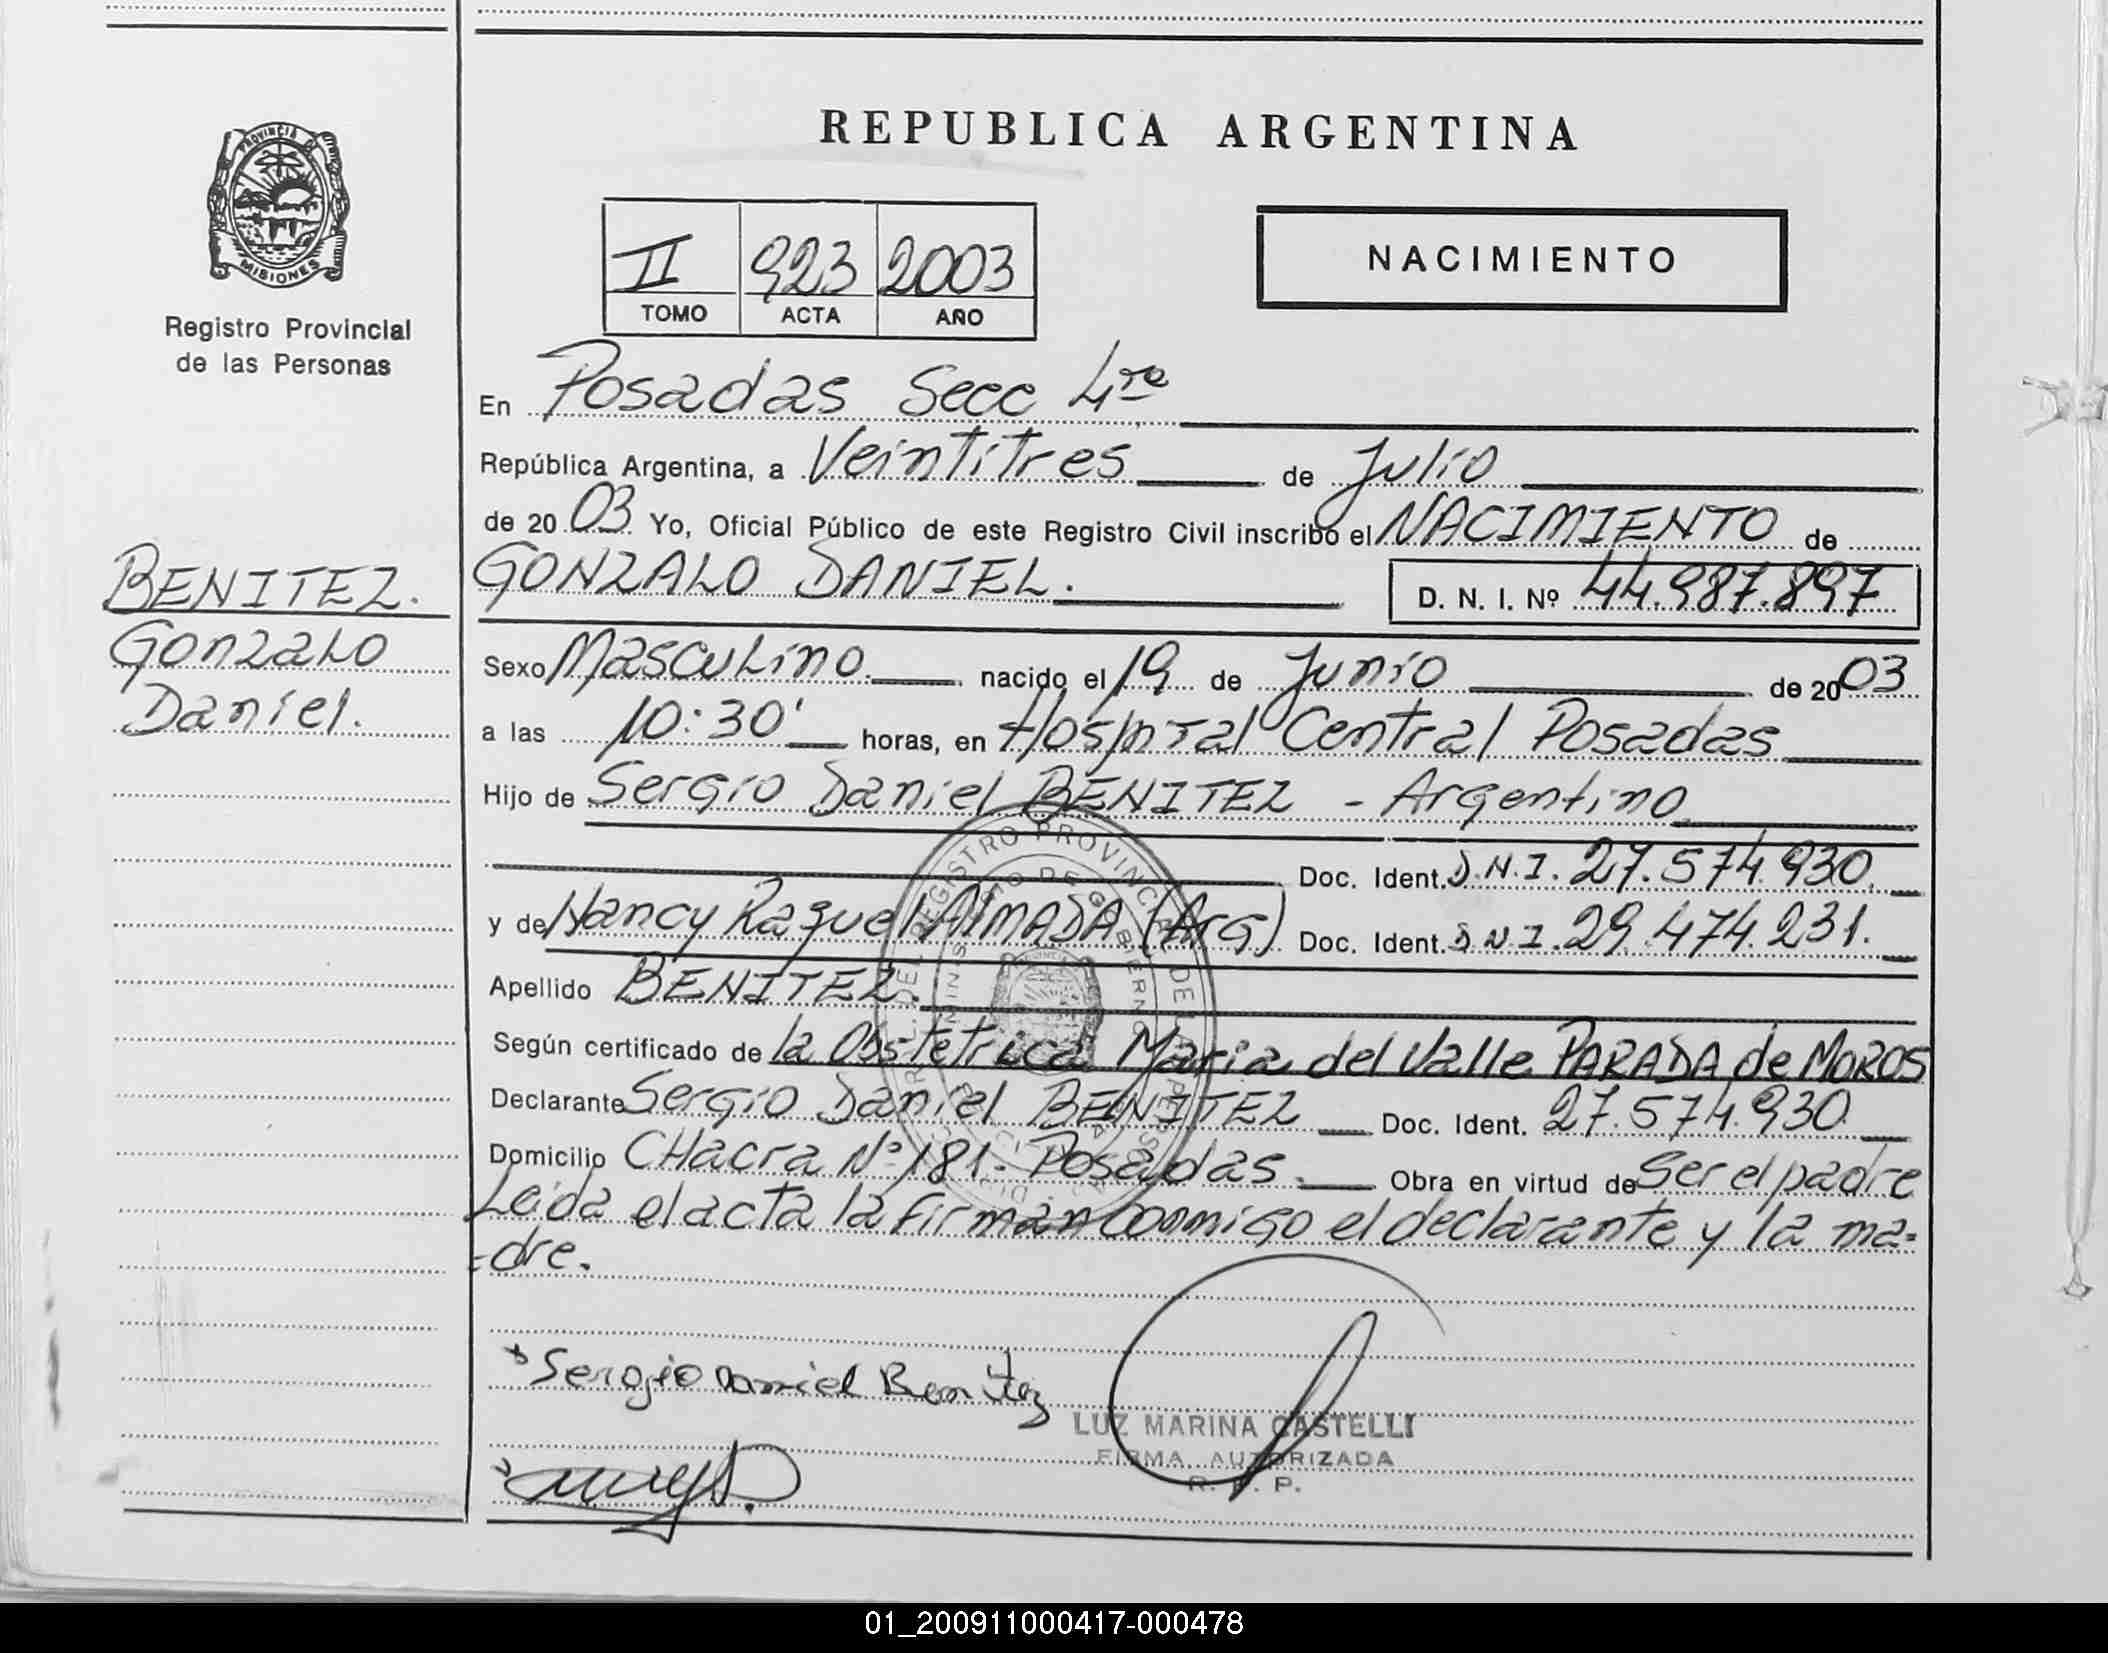 REPUBLICA ARGENTINA
PROVINCIA DE
MISIONES
Registro Provincial
de las Personas
II 923 2003
TOMO ACTA AÑO
NACIMIENTO
En Posadas Secc 4ta
República Argentina, a Veintitres de Julio
de 2003 Yo, Oficial Público de este Registro Civil inscribo el NACIMIENTO de
BENITEZ.
Gonzalo
Daniel.
GONZALO DANIEL. D. N. I. Nº 44.987.897
Sexo Masculino. nacido el 19 de Junio de 2003
a las 10:30' horas, en Hospital Central Posadas
Hijo de Sergio Daniel BENITEZ - Argentino
Doc. Ident. D.N.I. 27.574.930.
y de Nancy Raquel AlMADA (Arg) Doc. Ident. D.N.I. 29.474.231.
Apellido BENITEZ.
Según certificado de la Obstetrica Maria del Valle PARADA de MOROS
Declarante Sergio Daniel BENITEZ Doc. Ident. 27.574.930
Domicilio CHacra Nº 181. Posadas. Obra en virtud de Ser el padre
Leida el acta la firman conmigo el declarante y la ma-
-dre.
Sergio Daniel Benitez
LUZ MARINA CASTELLI
FIRMA AUTORIZADA
R. P. P.
01_200911000417-000478